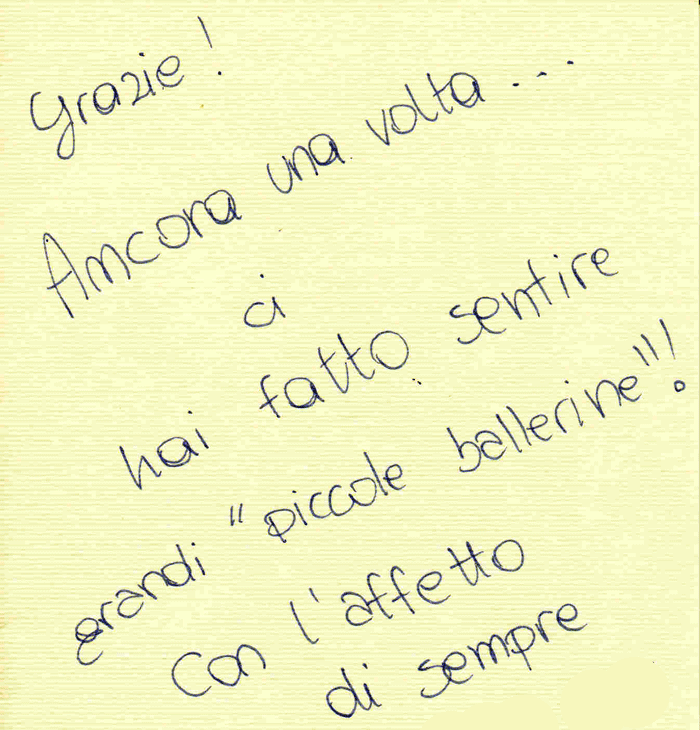 Grazie!
Ancora una volta...
ci
hai fatto sentire
grandi "piccole ballerine"!
Con l'affetto
di sempre